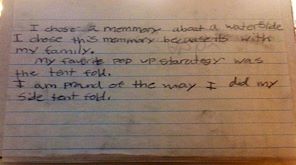 I chose a memmory about a waterslide
I chose this memmory because its with
my family.
My favorite pop up starategy was
the tent fold.
I am proud of the way I did my
side tent fold.